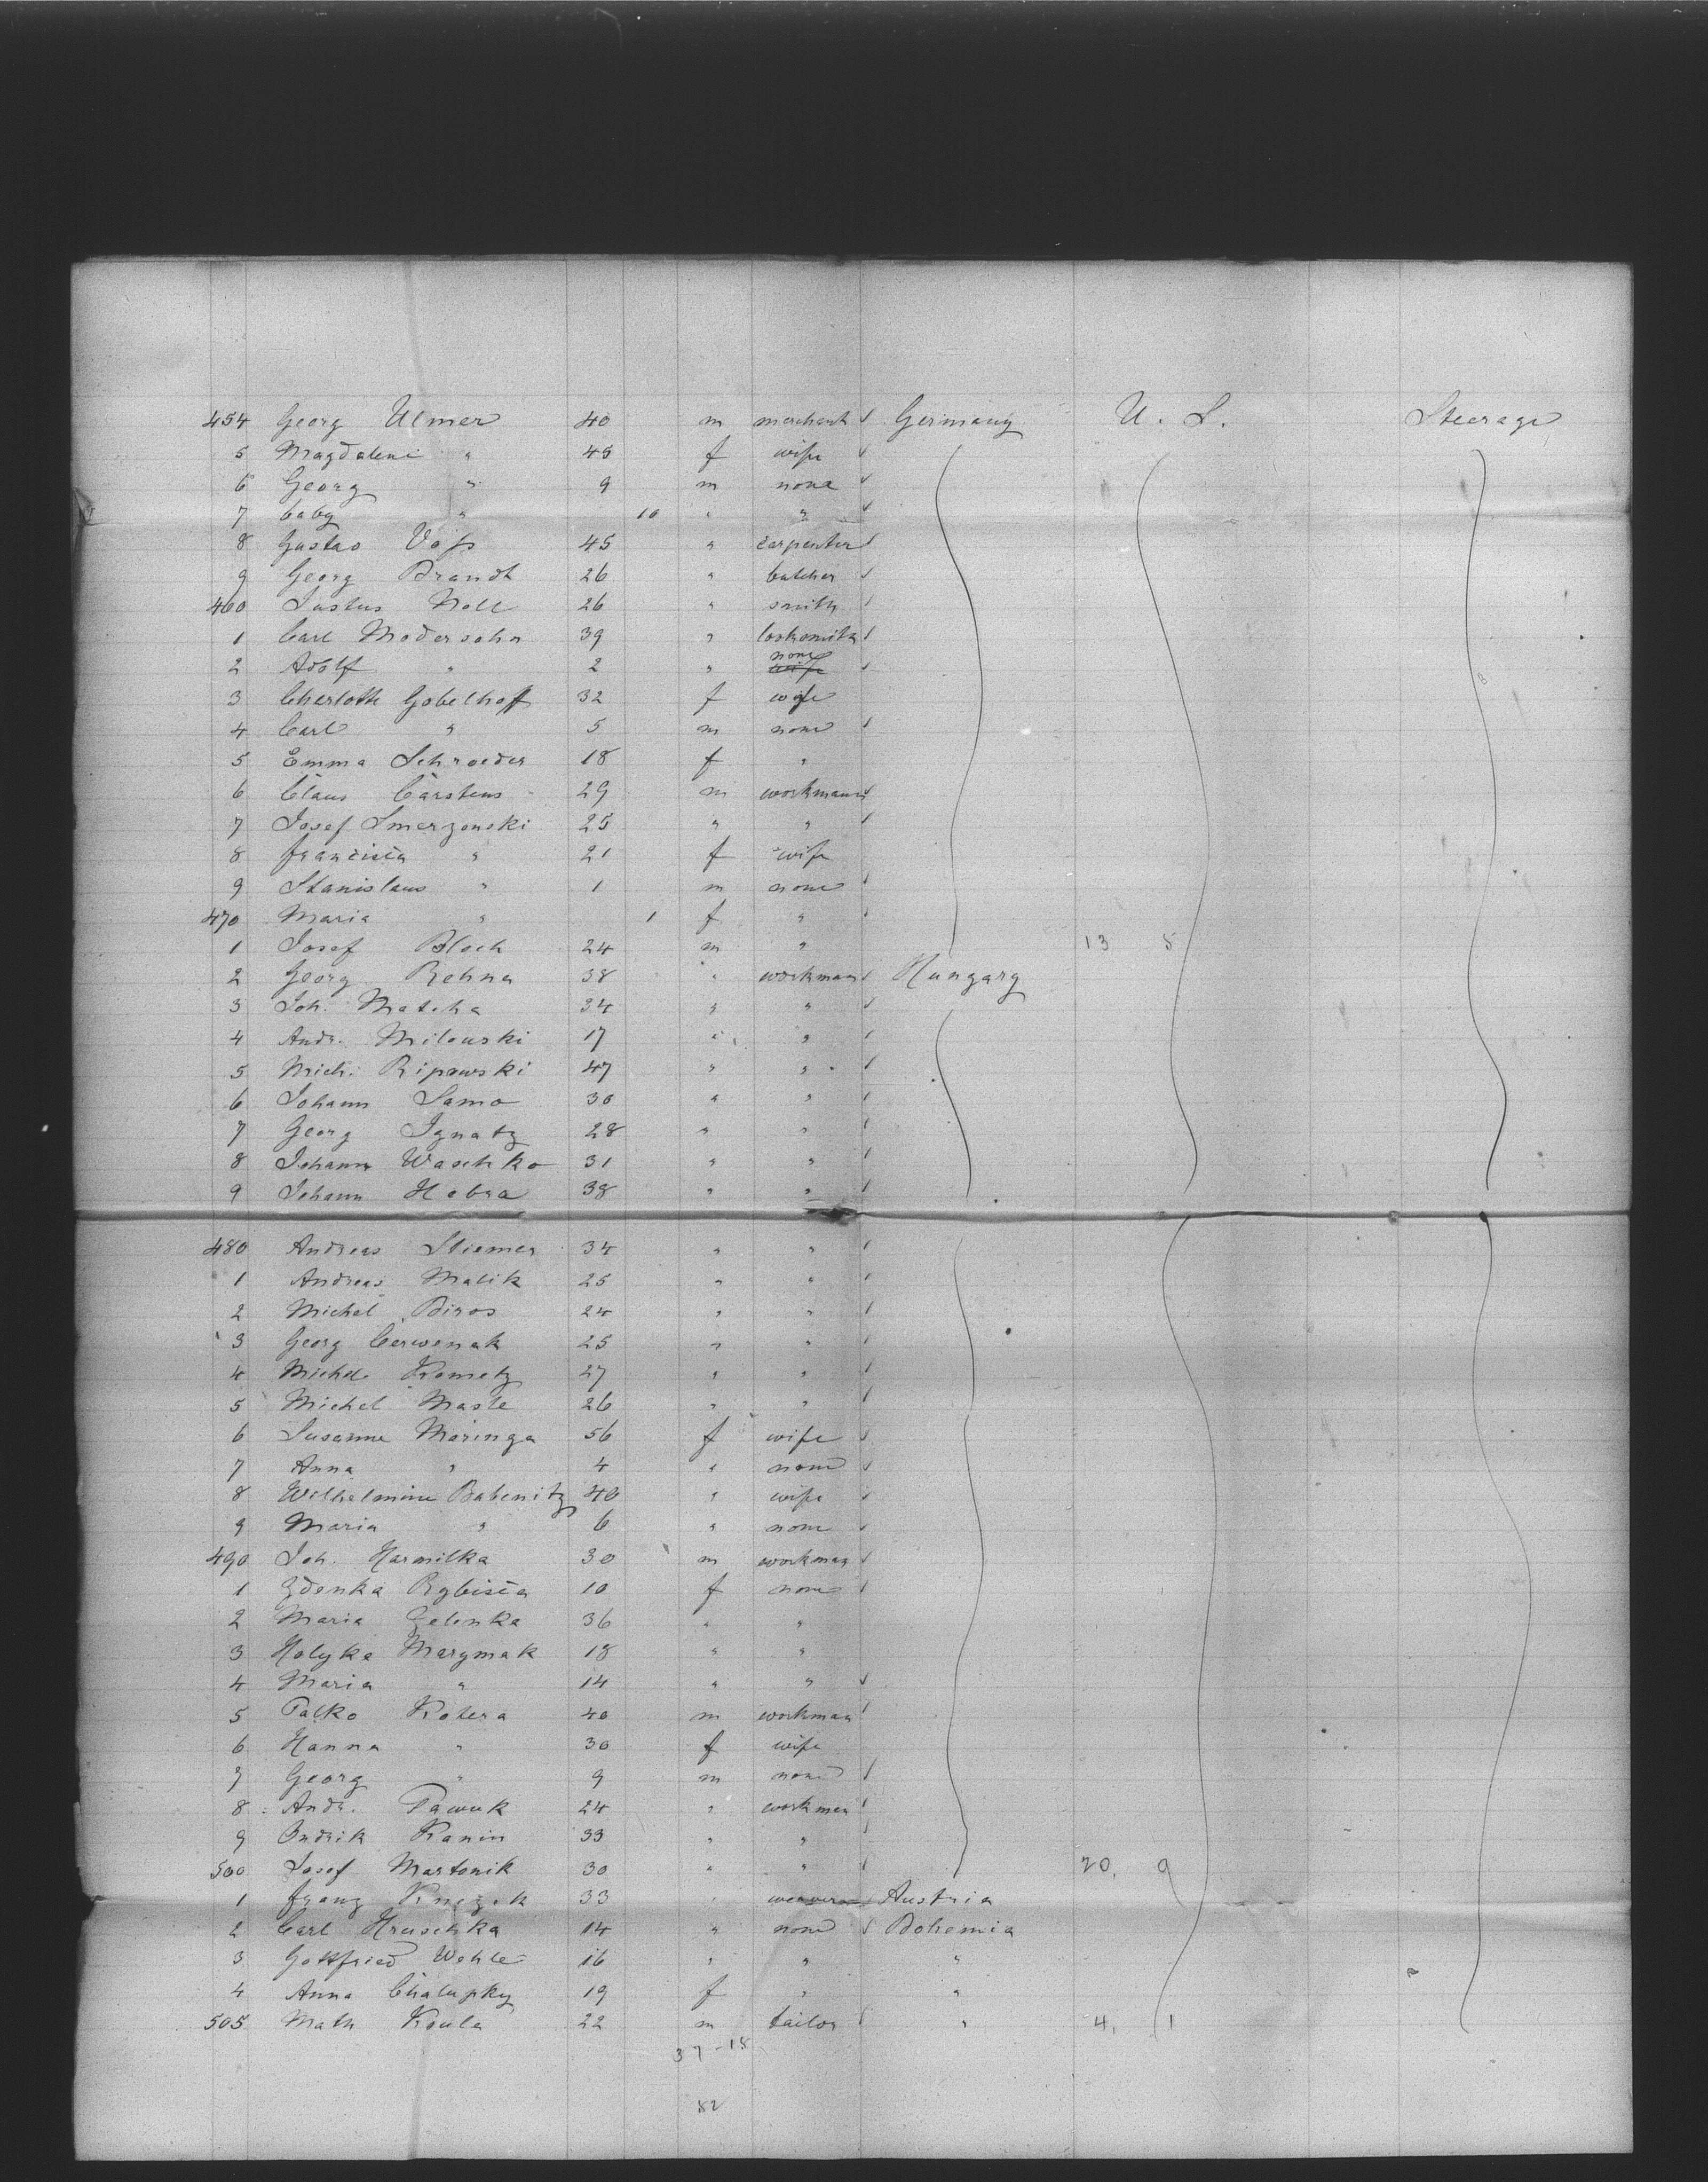 454 Georg Ulmer 40 m merchant Germany U. S. Steerage
5 Magdalene " 45 f wife
6 Georg " 9 m none
7 baby " 10 " "
8 Gustav Voss 45 " carpenter
9 Georg Brandt 26 " butcher
460 Justus Noll 26 " smith
1 Carl Modersohn 39 " locksmith
2 Adolf " 2 " none
3 Charlotte Gobelhoff 32 f wife
4 Carl " 5 m none
5 Emma Schroeder 18 f "
6 Claus Carstens 29 m workman
7 Josef Smerzonski 25 " "
8 Francisca " 21 f wife
9 Stanislaus " 1 m none
470 Maria " 1 f "
1 Josef Bloch 24 m " 13 5
2 Georg Rehna 38 " workman Hungary
3 Joh. Matcha 34 " "
4 Andr. Milowski 17 " "
5 Mich. Ripowski 47 " "
6 Johann Samo 30 " "
7 Georg Ignatz 28 " "
8 Johann Waschko 31 " "
9 Johann Hobra 38 " "
480 Andreas Stiemer 34 " "
1 Andreas Malik 25 " "
2 Michel Biros 24 " "
3 Georg Cerwenak 25 " "
4 Michel Kometz 27 " "
5 Michel Masle 26 " "
6 Susanne Maringa 56 f wife
7 Anna " 4 " none
8 Wilhelmine Babenitz 40 " wife
9 Maria " 6 " none
490 Joh. Harmilka 30 m workman
1 Zdenka Rybista 10 f none
2 Maria Zelenka 36 " "
3 Holyka Marymak 18 " "
4 Maria " 14 " "
5 Palko Kotera 40 m workman
6 Hanna " 30 f wife
7 Georg " 9 m none
8 Andr. Pawuk 24 " workman
9 Ondrik Kanin 33 " "
500 Josef Martonik 30 " " 20. 9
1 Franz Knezek 33 " weaver Austria
2 Carl Hruschka 14 " none Bohemia
3 Gottfried Wehle 16 " " "
4 Anna Chalupky 19 f " "
505 Math Koula 22 m tailor " 4. 1
37-15
52